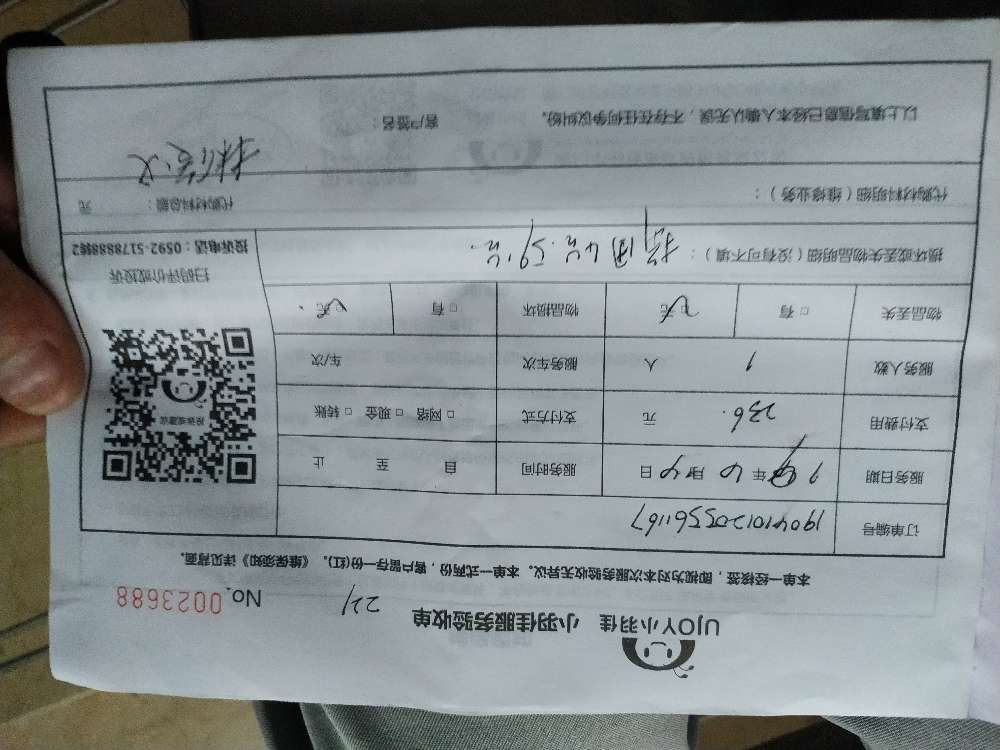 UJOY小羽佳 小羽佳服务验收单
No. 0023688
本单一经核签，即视为对本次服务验收无异议。本单一式两份，客户留存一份(红)。《维保须知》详见背面。
订单编号 1904101205561167
服务日期 年 月 日 服务时间 自 至 止
支付费用 236. 元 支付方式 □ 网络 □ 现金 □ 转账
服务人数 1 人 服务车次 车/次
物品丢失 □ 有 □ 无 物品损坏 □ 有 □ 无
投诉或建议
扫码评价或投诉
投诉电话：0592-5178888转2
损坏或丢失物品明细（没有可不填）：
代购材料明细（维修业务）：
代购材料总额： 元
以上填写信息已经本人确认无误，不存在任何争议纠纷。 客户签名：